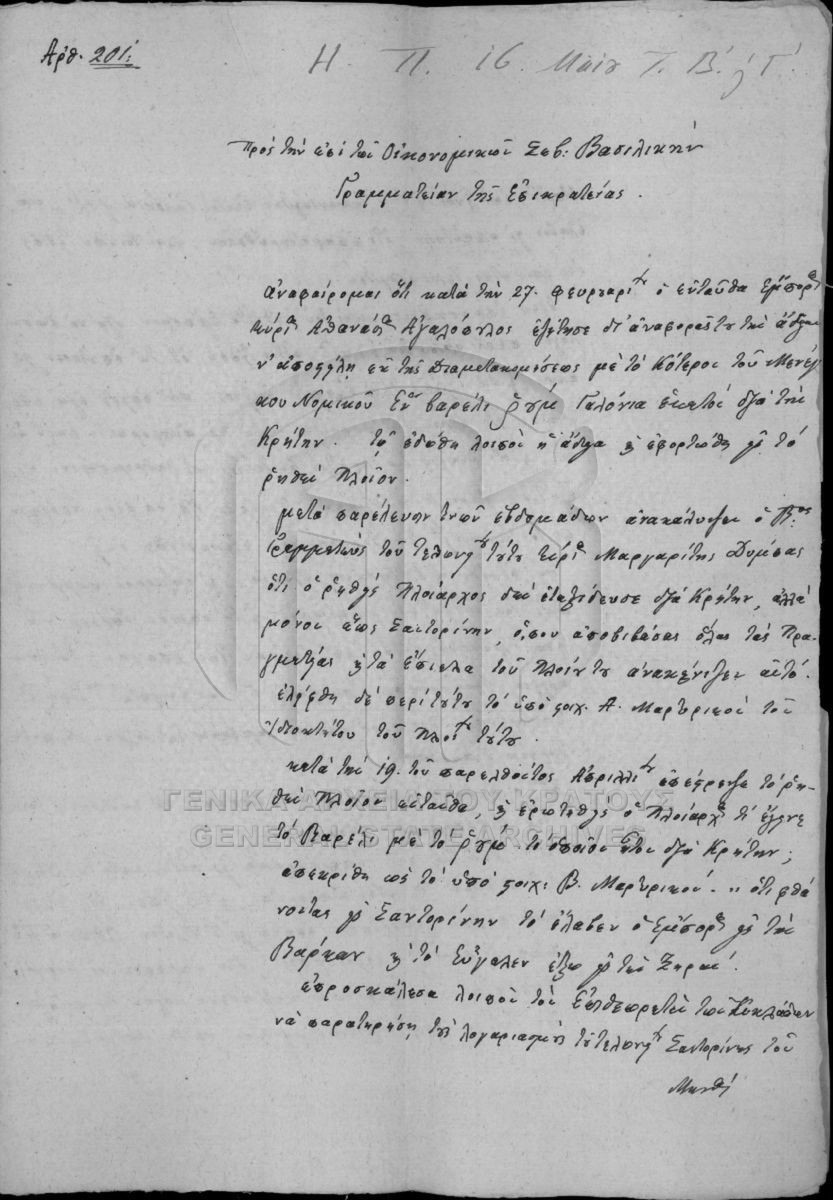 Αρθ. 201:
Η Π. 16 Μαΐου Τ. Β. & Γ.
Πρός την επί των Οικονομικών Σεβ: Βασιλικήν
Γραμματείαν της Επικρατείας.
Αναφαίρομαι ότι κατά την 27. φευρουαρίου ο ενταύθα Έμπορος
κύριος Αθανάσιος Αγαλόπουλος εζήτησε δι' αναφοράς του την άδειαν
ν' αποστείλη εκ της Διαμετακομίσεως με το Κότερον του
κου Νομικού Εν βαρέλι ρούμ Γαλόνια εκατόν διά την
Κρήτην. Τω εδόθη λοιπόν η άδεια & εφορτώθη εις το
ρηθέν Πλοίον.
μετά παρέλευσιν τινών εβδομάδων ανακάλυψεν ο Βος
Γραμματεύς του Τελωνείου τούτου κύριος Μαργαρίτης Δυμίσας
ότι ο ρηθείς Πλοίαρχος δεν εταξίδευσε διά Κρήτην, αλλά
μόνον έως Σαντορίνην, όπου αποβιβάσας όλας τας Πρα-
γματείας & τα έπιπλα του Πλοίου του ανακαίνιζεν αυτό.
ελήφθη δε περί τούτου το υπό στοιχ. Α. Μαρτυρικόν του
Ιδιοκτήτου του Πλοίου τούτου.
κατά την 19. του παρελθόντος Απριλλίου επέστρεψε το ρη-
θέν Πλοίον ενταύθα, & ερωτηθείς ο Πλοίαρχος τι έγεινε
το Βαρέλι με το ρούμ το οποίον ήτον διά Κρήτην;
απεκρίθη ως το υπό στοιχ: Β. Μαρτυρικόν. „ ότι φθά
νοντας εις Σαντορίνην το έλαβεν ο Έμπορος εις την
Βάρκαν & το εύγαλεν έξω εις την Ξηράν.
επροσκάλεσα λοιπόν τον Επιθεωρητήν των Κυκλάδων
να παρατηρήση τους λογαριασμούς του Τελωνείου Σαντορίνης του
ΓΕΝΙΚΑ ΑΡΧΕΙΑ ΤΟΥ ΚΡΑΤΟΥΣ
GENERAL STATE ARCHIVES